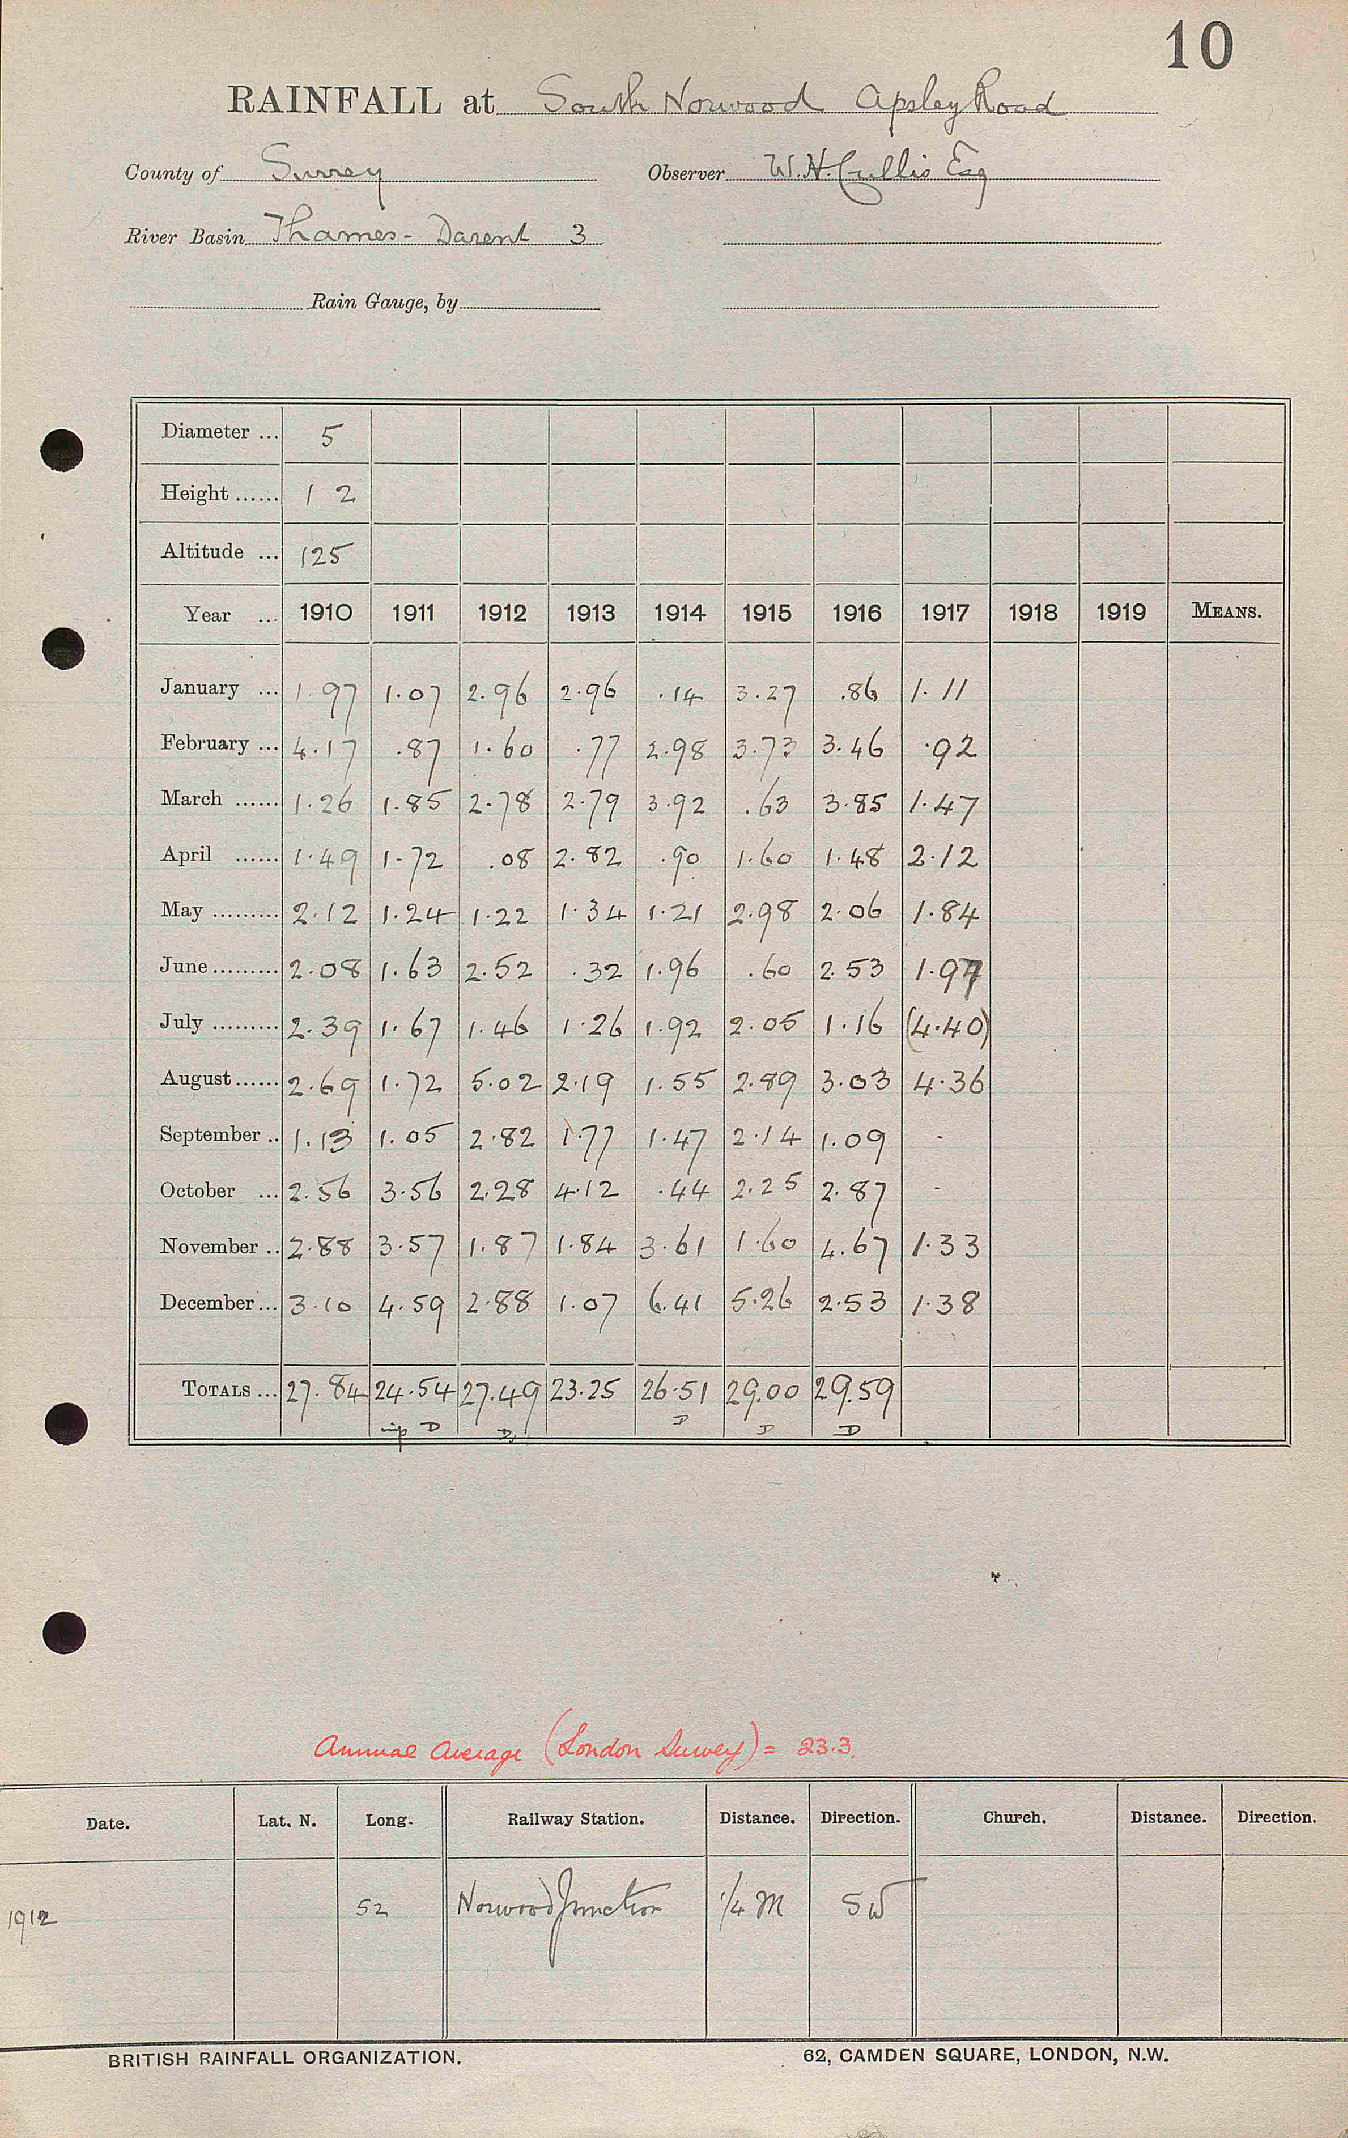 10
RAINFALL at South Norwood Apsley Road
County of Surrey Observer W.H. Cullis Esq
River Basin Thames - Darent 3
Rain Gauge, by
Diameter ... 5
Height ...... 1 2
Altitude ... 125
Year ... 1910 1911 1912 1913 1914 1915 1916 1917 1918 1919 MEANS.
January ... 1.97 1.07 2.96 2.96 .14 3.27 .86 1.11
February ... 4.17 .87 1.60 .77 2.98 3.73 3.46 .92
March ...... 1.26 1.85 2.78 2.79 3.92 .63 3.85 1.47
April ...... 1.49 1.72 .08 2.82 .90 1.60 1.48 2.12
May ......... 2.12 1.24 1.22 1.34 1.21 2.98 2.06 1.84
June ......... 2.08 1.63 2.52 .32 1.96 .60 2.53 1.97
July ......... 2.39 1.67 1.46 1.26 1.92 2.05 1.16 (4.40)
August ...... 2.69 1.72 5.02 2.19 1.55 2.89 3.03 4.36
September .. 1.13 1.05 2.82 1.77 1.47 2.14 1.09 -
October ... 2.56 3.56 2.28 4.12 .44 2.25 2.87 -
November .. 2.88 3.57 1.87 1.84 3.61 1.60 4.67 1.33
December ... 3.10 4.59 2.88 1.07 6.41 5.26 2.53 1.38
TOTALS ... 27.84 24.54 27.49 23.25 26.51 29.00 29.59
D D D D D
Annual Average (London Survey) = 23.3.
Date. Lat. N. Long. Railway Station. Distance. Direction. Church. Distance. Direction.
1912 52 Norwood Junction 1/4 M SW
BRITISH RAINFALL ORGANIZATION. 62, CAMDEN SQUARE, LONDON, N.W.